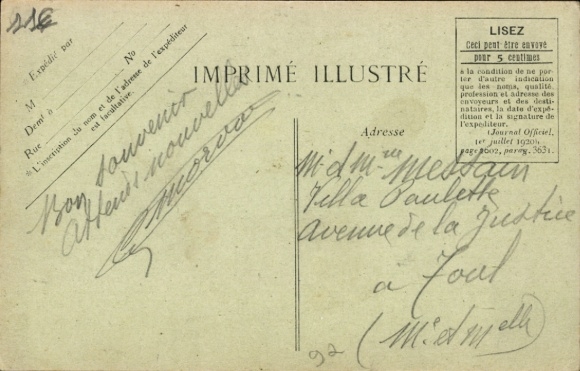 11€
Expédié par
M
Demt à
Rue
No
* L'inscription du nom et de l'adresse de l'expéditeur
est facultative.
IMPRIMÉ ILLUSTRÉ
LISEZ
Ceci peut être envoyé
pour 5 centimes
à la condition de ne por-
ter d'autre indication
que les noms, qualité,
profession et adresse des
envoyeurs et des desti-
nataires, la date d'expé-
dition et la signature de
l'expéditeur.
(Journal Officiel,
1er juillet 1920),
page 2602, parag. 3631.
Bon souvenir
Attends nouvelles
Adresse
Mr et Mme Messain
Villa Paulette
Avenue de la Justice
à Toul
(Mt et Melle)
92